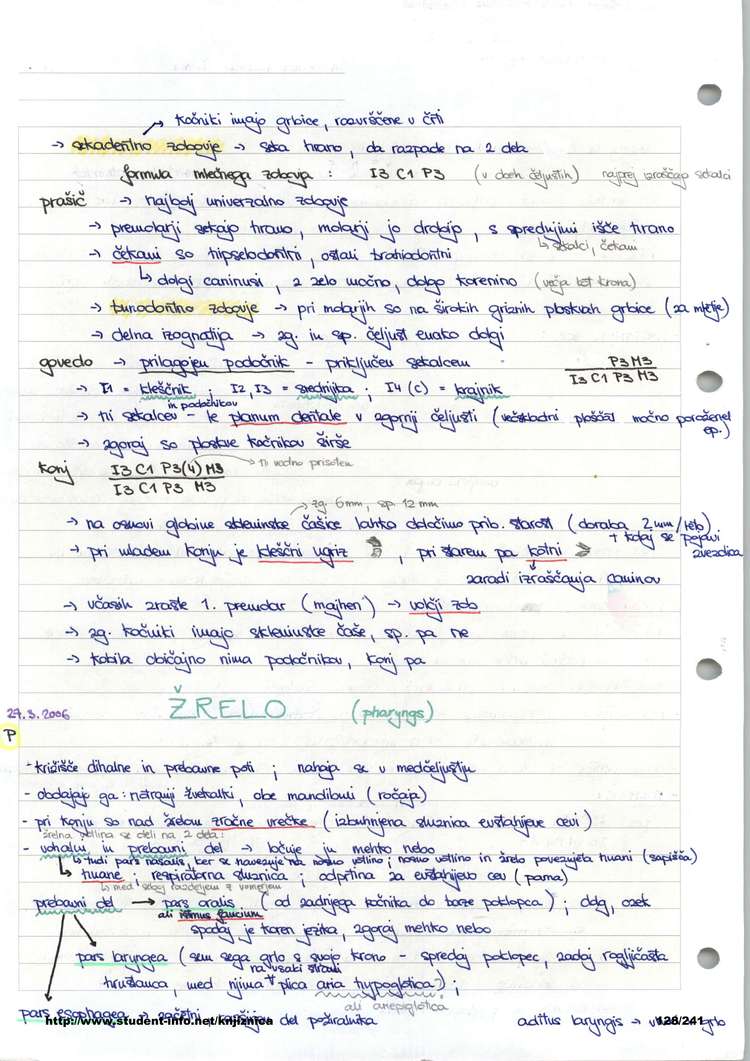 kočniki imajo grbice, razvrščene v črti
→ sekadentno zobovje → seka hrano, da razpade na 2 dela
formula mlečnega zobovja : I3 C1 P3 (v obeh čeljustih) najprej izraščajo sekalci
prašič → najbolj univerzalno zobovje
→ premolarji sekajo hrano, molarji jo drobijo, s sprednjimi išče hrano
↳ sekalci, čekani
→ čekani so hipselodontni, ostali brahiodontni
↳ dolgi caninusi, z zelo močno, dolgo korenino (večja kot krona)
→ bunodontno zobovje → pri molarjih so na širokih griznih ploskvah grbice (za mletje)
→ delna izognatija → zg. in sp. čeljust enako dolgi
govedo → prilagojen podočnik - priključen sekalcem
P3 M3
I3 C1 P3 M3
→ I1 = kleščnik ; I2, I3 = srednjika ; I4 (C) = krajnik
in podočnikov
→ ni sekalcev - le planum dentale v zgornji čeljusti (večskladni ploščat močno poroženel ep.)
→ zgoraj so ploskve kočnikov širše
konj I3 C1 P3(4) M3 → ni vedno prisoten
I3 C1 P3 M3
→ zg. 6mm, sp. 12 mm
→ na osnovi globine skleninske čašice lahko določimo prib. starost (obraba 2mm/leto)
+ kdaj se pojavi zvezdica
→ pri mladem konju je kleščni ugriz , pri starem pa kotni
zaradi izraščanja caninov
→ včasih zraste 1. premolar (majhen) → volčji zob
→ zg. kočniki imajo skleninske čaše, sp. pa ne
→ kobila običajno nima podočnikov, konj pa
27.3.2006 ŽRELO (pharyngs)
P
- križišče dihalne in prebavne poti ; nahaja se v medčeljustju
- obdajajo ga : notranji žvekalki, obe mandibuli (ročaja)
- pri konju so nad žrelom zračne vrečke (izbuhnjena sluznica evstahijeve cevi)
žrelna votlina se deli na 2 dela:
- vohalni in prebavni del → ločuje ju mehko nebo
↳ tudi pars nasalis, ker se navezuje na nosno votlino ; nosno votlino in žrelo povezujeta hoani (sapišča)
↳ hoane ; respiratorna sluznica ; odprtina za evstahijevo cev (parna)
↳ med seboj razdeljeni z vomerjem
prebavni del → pars oralis (od zadnjega kočnika do baze poklopca) ; dolg, ozek
ali istmus faucium
spodaj je koren jezika, zgoraj mehko nebo
pars laryngea (sem sega grlo s svojo krono - spredaj poklopec, zadaj rogljičasta
na vsaki strani
hrustanca, med njima + plica aria hypoglotica) ;
ali ariepiglotica
pars esophagea → začetni del požiralnika aditus laryngis → grlo
http://www.student-info.net/knjiznica 128/241